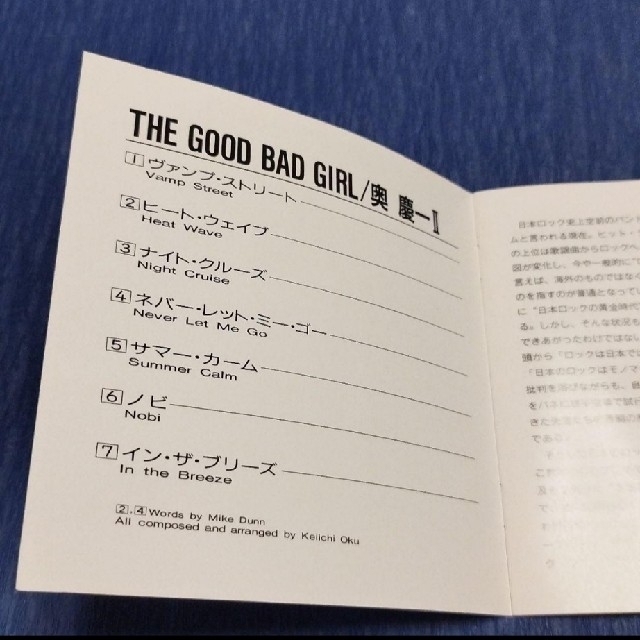 THE GOOD BAD GIRL/奥 慶一 II
1 ヴァンプ・ストリート
Vamp Street
2 ヒート・ウェイブ
Heat Wave
3 ナイト・クルーズ
Night Cruise
4 ネバー・レット・ミー・ゴー
Never Let Me Go
5 サマー・カーム
Summer Calm
6 ノビ
Nobi
7 イン・ザ・ブリーズ
In the Breeze
2.4 Words by Mike Dunn
All composed and arranged by Keiichi Oku
日本ロック史上空前のバン
ムと言われる現在。ヒット・
の上位は歌謡曲からロックへ
図が変化し、今や一般的に"
言えば、海外のものではな
のを指すのが普通となってい
に"日本ロックの黄金時代
る。しかし、そんな状況も
できあがったわけではない
頭から「ロックは日本で
「日本のロックはモノマ
批判を浴びながらも、